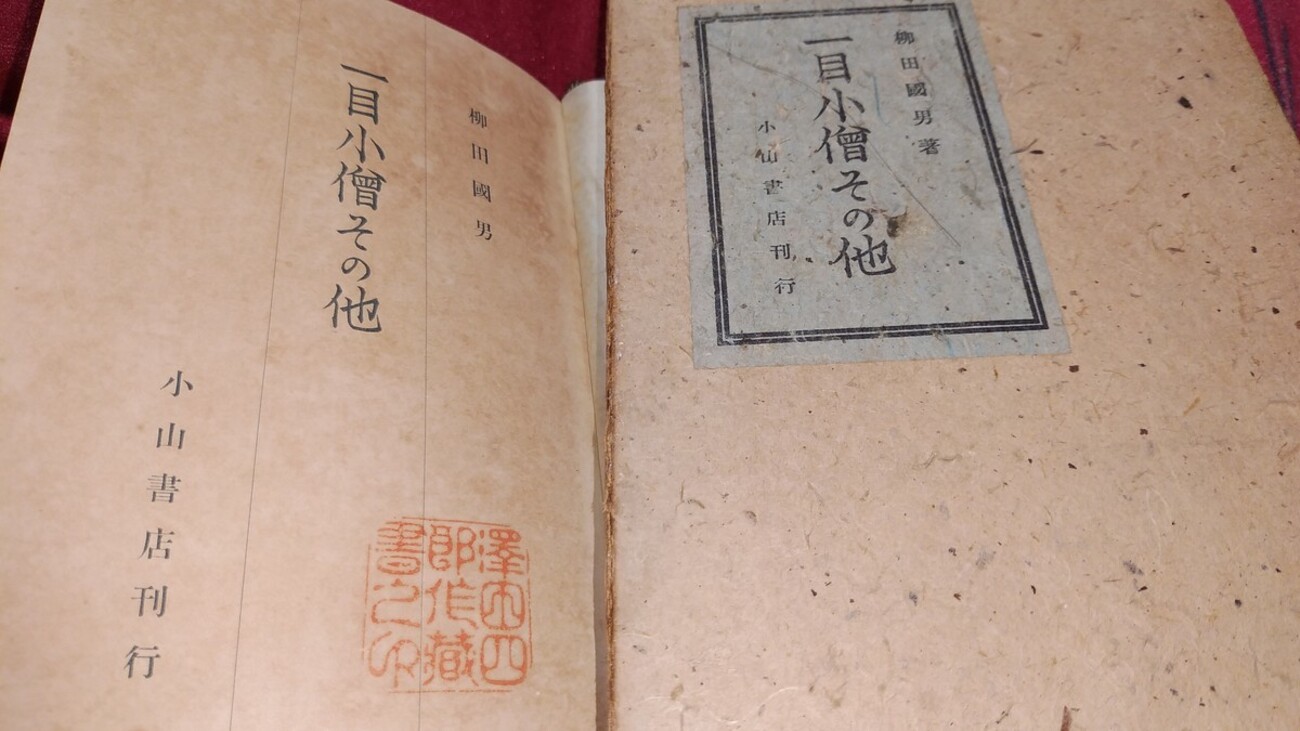 柳田國男著
一目小僧その他
小山書店刊行
柳田國男
一目小僧その他
小山書店刊行
澤田四
郎作藏
書之印